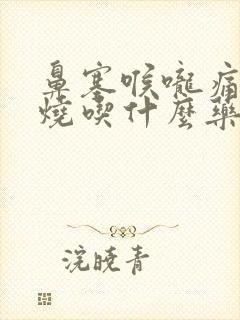 鼻塞喉嚨痛
燒喫什麼藥
浣曉青